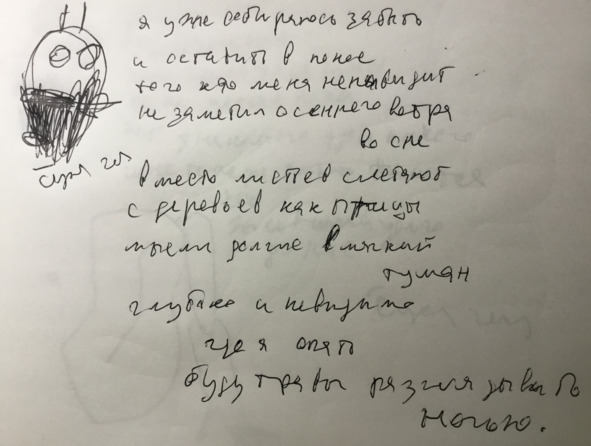 я уже собираюсь забыть
и оставить в покое
того кто меня ненавидит
не заметил осеннего ветра
во сне
вместо листьев слетают
с деревьев как птицы
мысли долгие в мягкий
туман
глубоко и невидимо
где я опять
буду травы разглядывать
ночью.